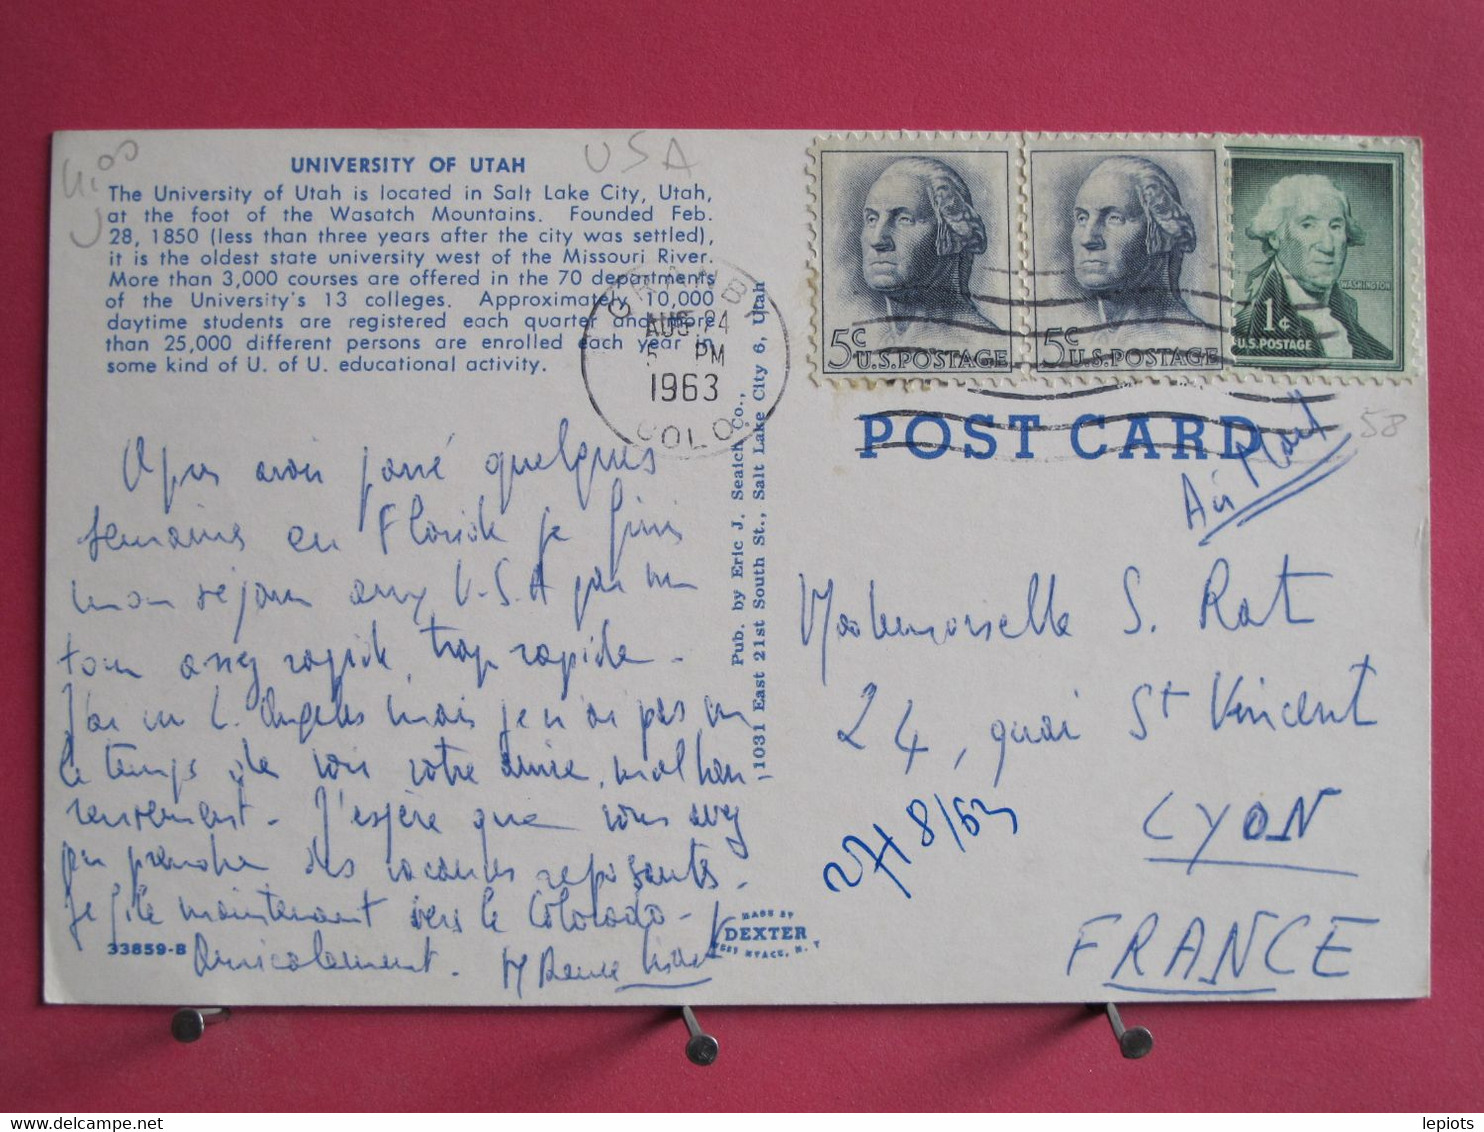 UNIVERSITY OF UTAH
The University of Utah is located in Salt Lake City, Utah,
at the foot of the Wasatch Mountains. Founded Feb.
28, 1850 (less than three years after the city was settled),
it is the oldest state university west of the Missouri River.
More than 3,000 courses are offered in the 70 departments
of the University's 13 colleges. Approximately 10,000
daytime students are registered each quarter and more
than 25,000 different persons are enrolled each year in
some kind of U. of U. educational activity.
USA
GRANBY
AUG 24
PM
1963
COLO.
5c U.S. POSTAGE
5c U.S. POSTAGE
WASHINGTON
1¢
U.S. POSTAGE
POST CARD
58
Air Mail
Après avoir passé quelques
semaines en Floride je finis
mon séjour aux U.S.A par un
tour assez rapide, trop rapide.
J'ai vu L. Angeles mais je n'ai pas eu
le temps de voir votre amie, malheu-
reusement. J'espère que vous avez
pu prendre des vacances reposantes.
Je file maintenant vers le Colorado.
Amicalement.
33859-B
Pub. by Eric J. Seaich Co.,
1031 East 21st South St., Salt Lake City 6, Utah
MADE BY
DEXTER
WEST NYACK, N. Y.
Mademoiselle S. Rat
24, quai St Vincent
LYON
FRANCE
27/8/63
lepiots